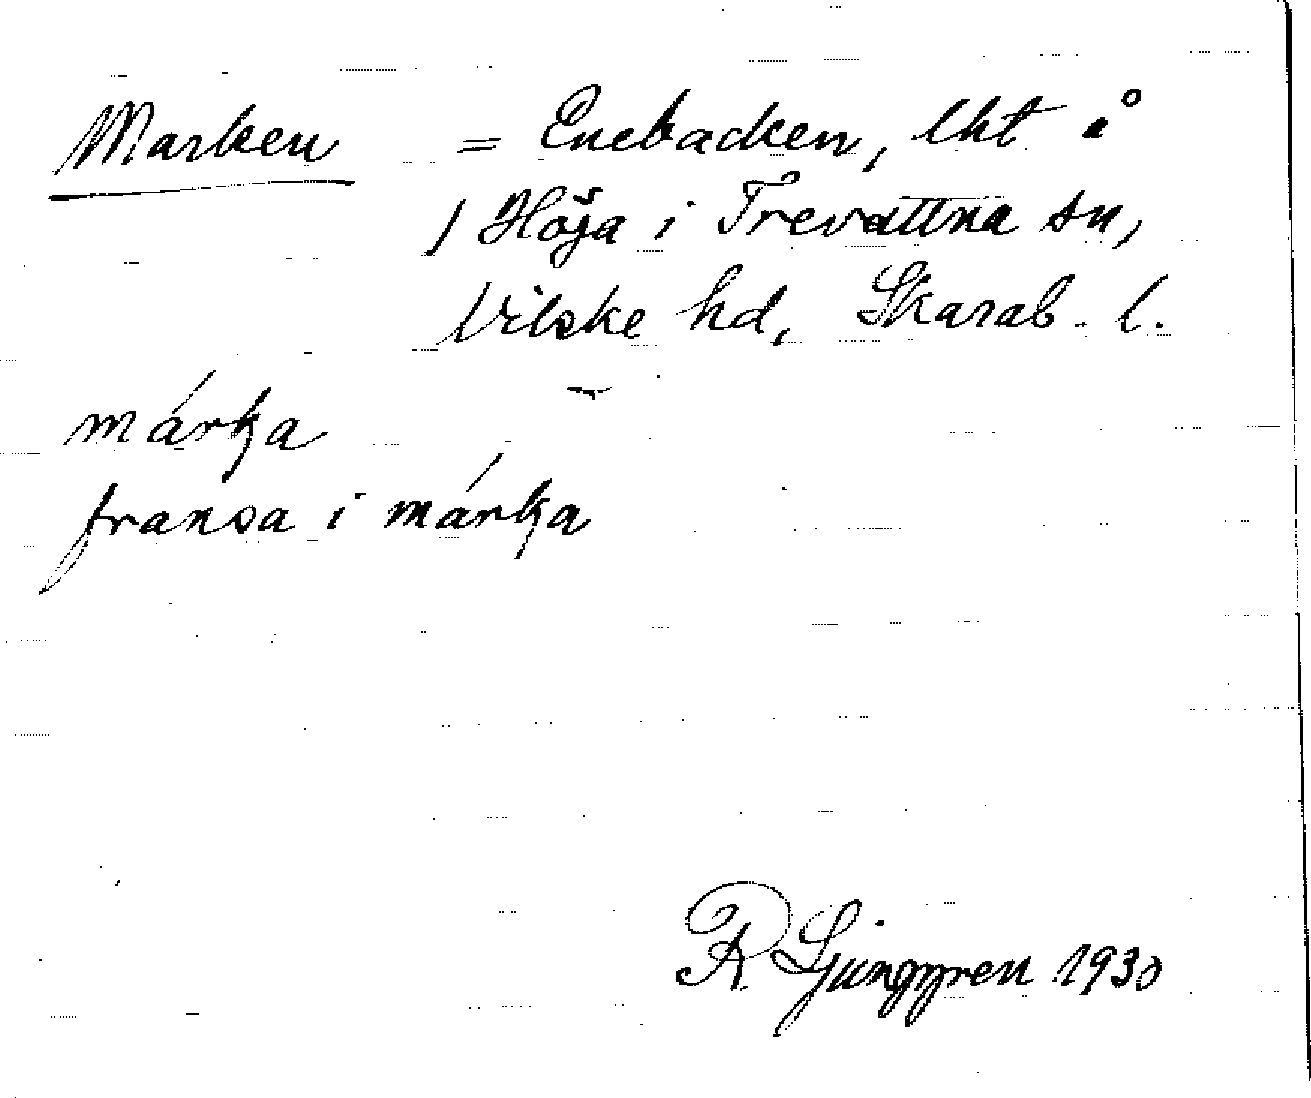 Marken = Enebacken, lht å
/ Höja i Trevattna sn,
Vilske hd, Skarab. l.
márka
fransa i márka
R Ljunggren 1930